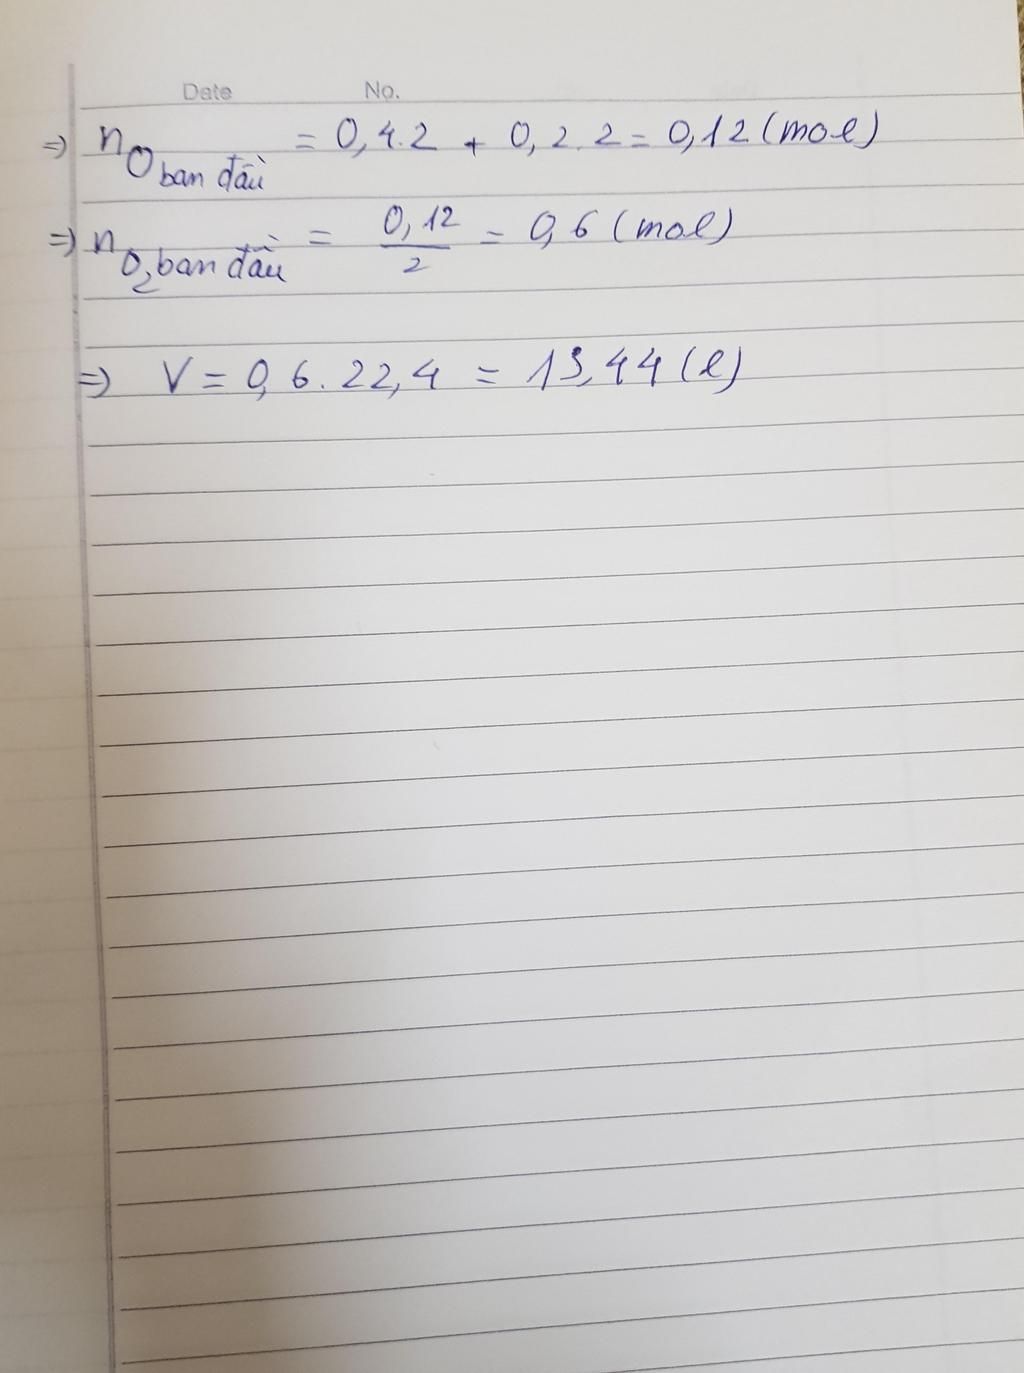 Date No.
=> nO ban đầu = 0,4.2 + 0,2.2 = 0,12 (mol)
=> nO2 ban đầu = 0,12/2 = 0,6 (mol)
=> V = 0,6.22,4 = 13,44 (l)